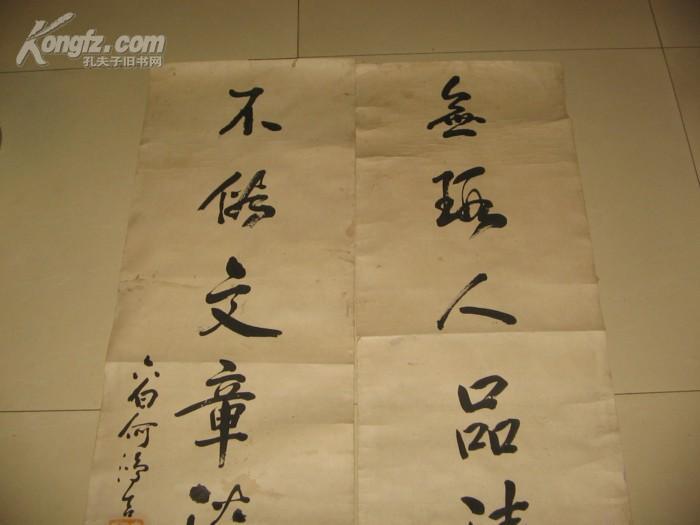 Kongfz.com
孔夫子旧书网
無瑕人品清
不俗文章淡
何